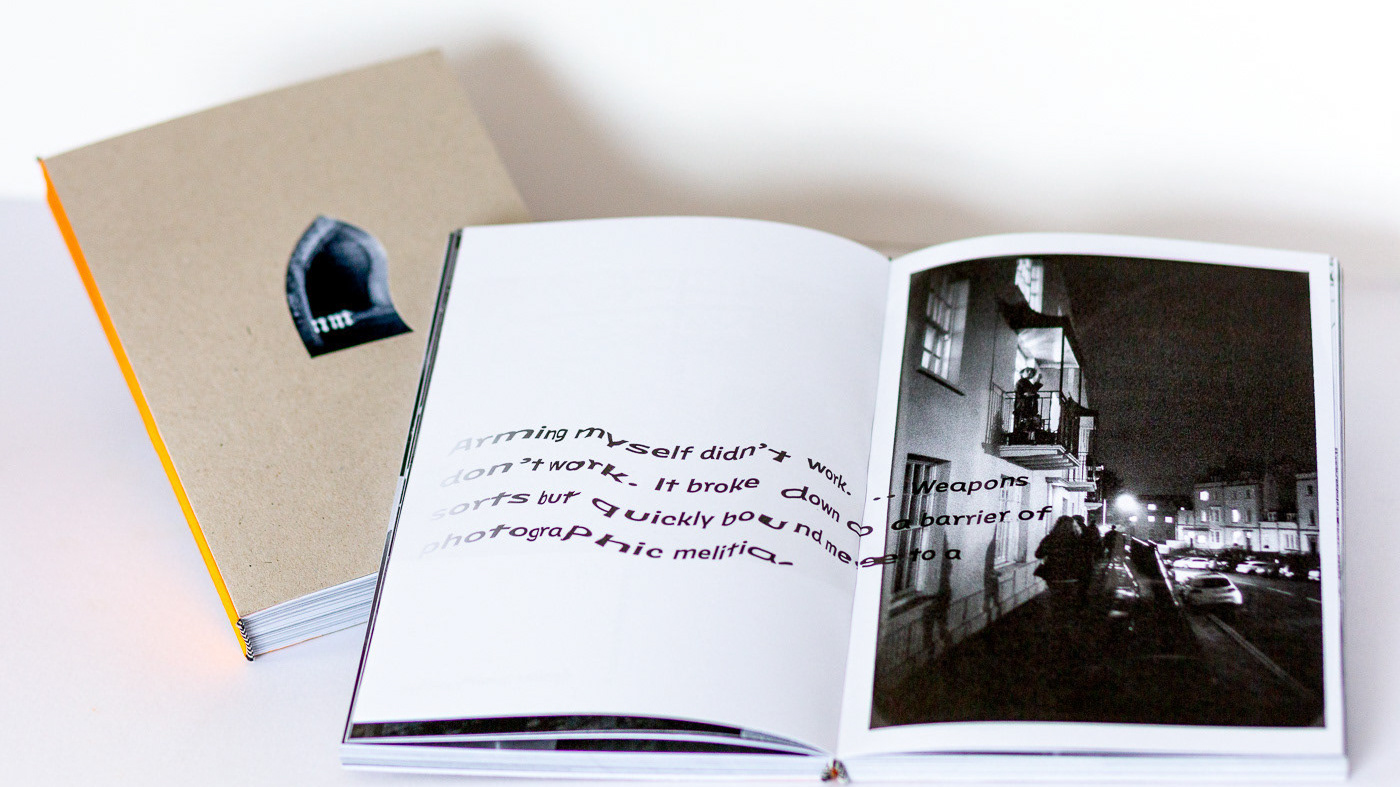 Arming myself didn't work. -- Weapons
don't work. It broke down ♡ a barrier of
sorts but quickly bound me se to a
photographic melitia.